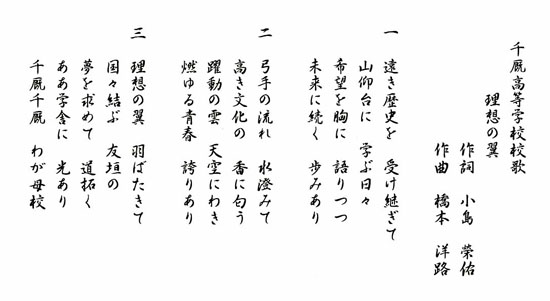 千厩高等学校校歌
理想の翼
作詞 小島 榮佑
作曲 橋本 洋路
一 遠き歴史を 受け継ぎて
山仰台に 学ぶ日々
希望を胸に 語りつつ
未来に続く 歩みあり
二 弓手の流れ 水澄みて
高き文化の 香に匂う
躍動の雲 天空にわき
燃ゆる青春 誇りあり
三 理想の翼 羽ばたきて
国々結ぶ 友垣の
夢を求めて 道拓く
ああ学舎に 光あり
千厩千厩 わが母校